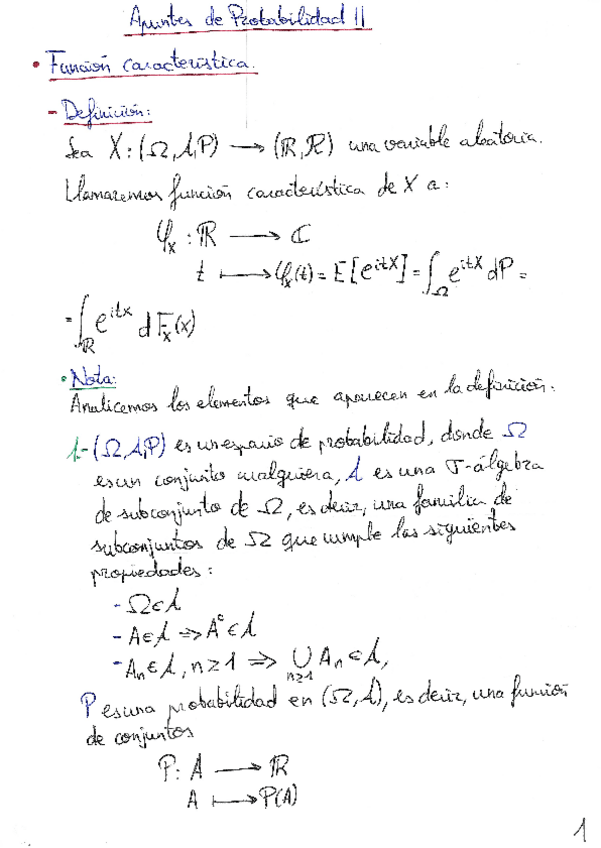 Apuntes de Probabilidad II
• Función característica.
- Definición:
Sea X: (Ω, A, P) → (ℝ, R) una variable aleatoria.
Llamaremos función característica de X a:
φ_X : ℝ → ℂ
t ↦ φ_X(t) = E[e^{itX}] = ∫_Ω e^{itX} dP =
= ∫_ℝ e^{itx} dF_X(x)
• Nota:
Analicemos los elementos que aparecen en la definición:
1- (Ω, A, P) es un espacio de probabilidad, donde Ω
es un conjunto cualquiera, A es una σ-álgebra
de subconjunto de Ω, es decir, una familia de
subconjuntos de Ω que cumple las siguientes
propiedades:
- Ω ∈ A
- A ∈ A ⇒ A^c ∈ A
- A_n ∈ A, n ≥ 1 ⇒ ∪_{n≥1} A_n ∈ A,
P es una probabilidad en (Ω, A), es decir, una función
de conjuntos
P: A → ℝ
A ↦ P(A)
1